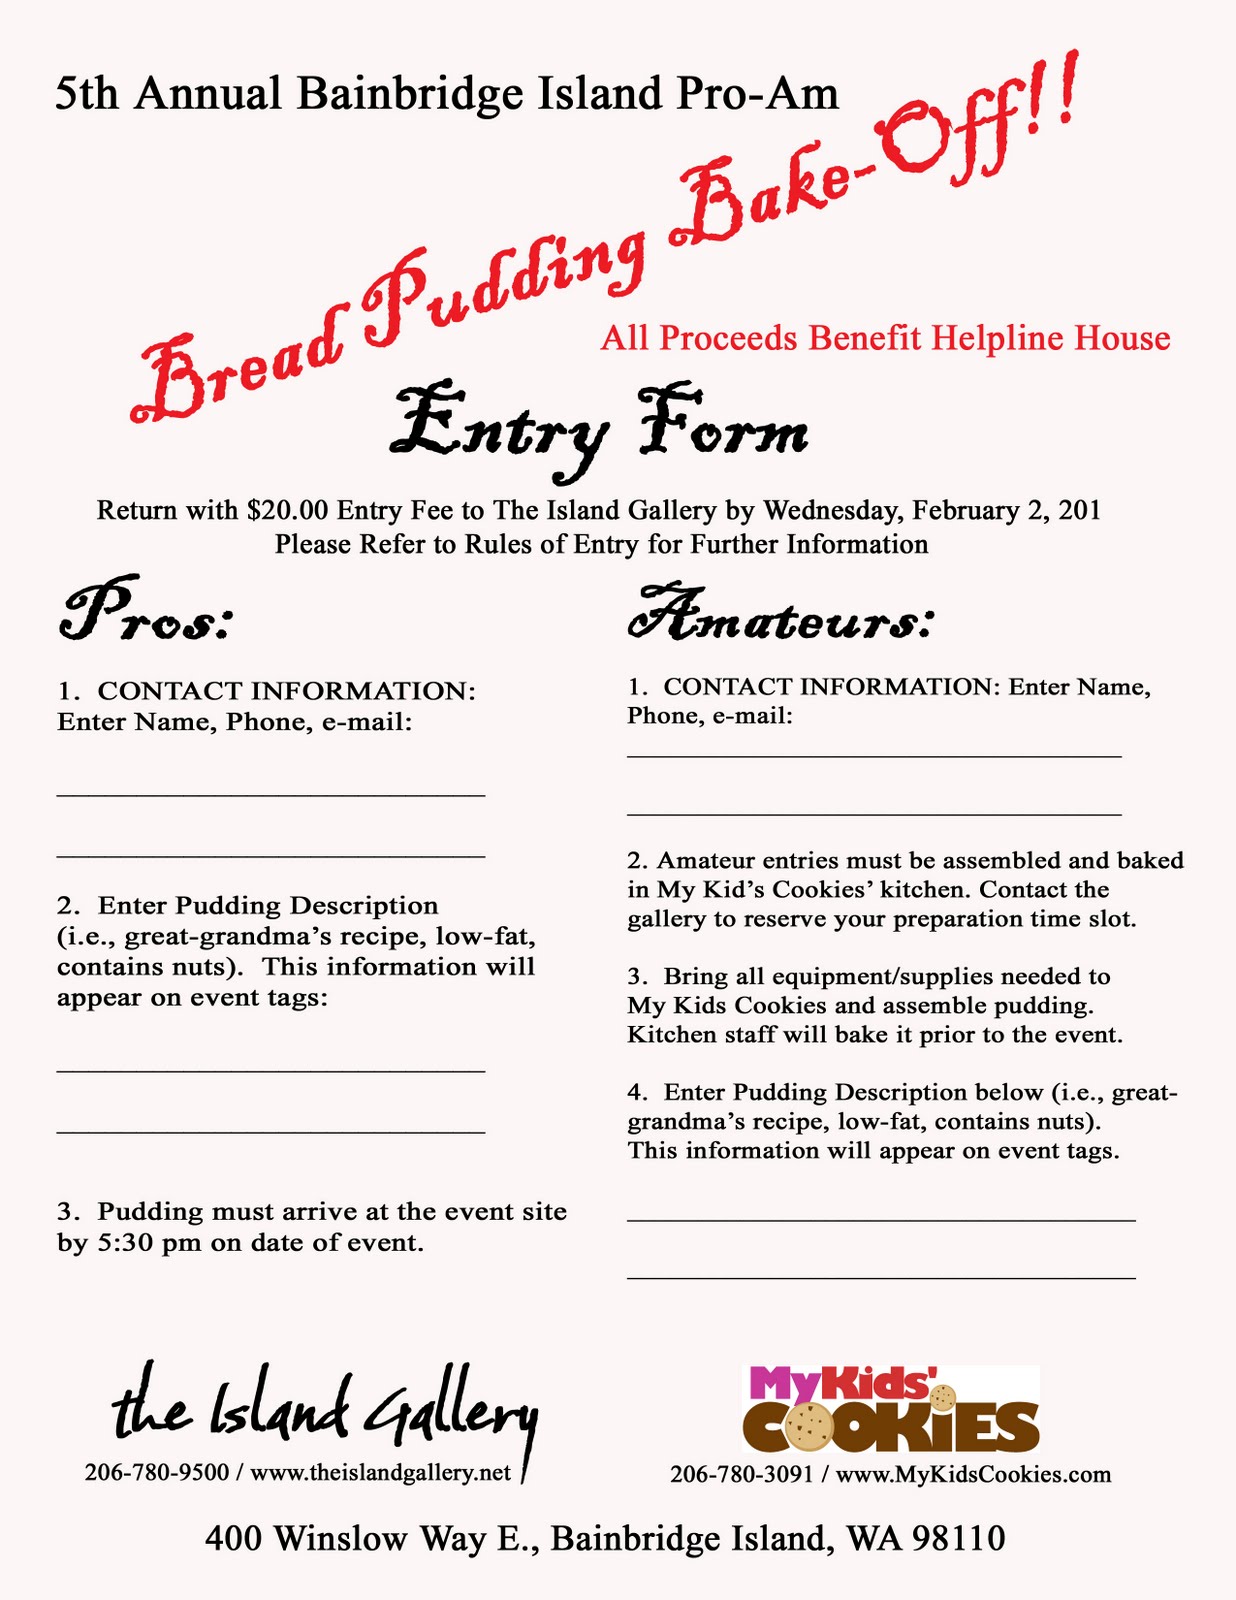 5th Annual Bainbridge Island Pro-Am
Bread Pudding Bake-Off!!
All Proceeds Benefit Helpline House
Entry Form
Return with $20.00 Entry Fee to The Island Gallery by Wednesday, February 2, 201
Please Refer to Rules of Entry for Further Information
Pros:
1. CONTACT INFORMATION:
Enter Name, Phone, e-mail:
2. Enter Pudding Description
(i.e., great-grandma's recipe, low-fat,
contains nuts). This information will
appear on event tags:
3. Pudding must arrive at the event site
by 5:30 pm on date of event.
Amateurs:
1. CONTACT INFORMATION: Enter Name,
Phone, e-mail:
2. Amateur entries must be assembled and baked
in My Kid's Cookies' kitchen. Contact the
gallery to reserve your preparation time slot.
3. Bring all equipment/supplies needed to
My Kids Cookies and assemble pudding.
Kitchen staff will bake it prior to the event.
4. Enter Pudding Description below (i.e., great-
grandma's recipe, low-fat, contains nuts).
This information will appear on event tags.
the Island Gallery
206-780-9500 / www.theislandgallery.net
MyKids'
COOKiES
206-780-3091 / www.MyKidsCookies.com
400 Winslow Way E., Bainbridge Island, WA 98110